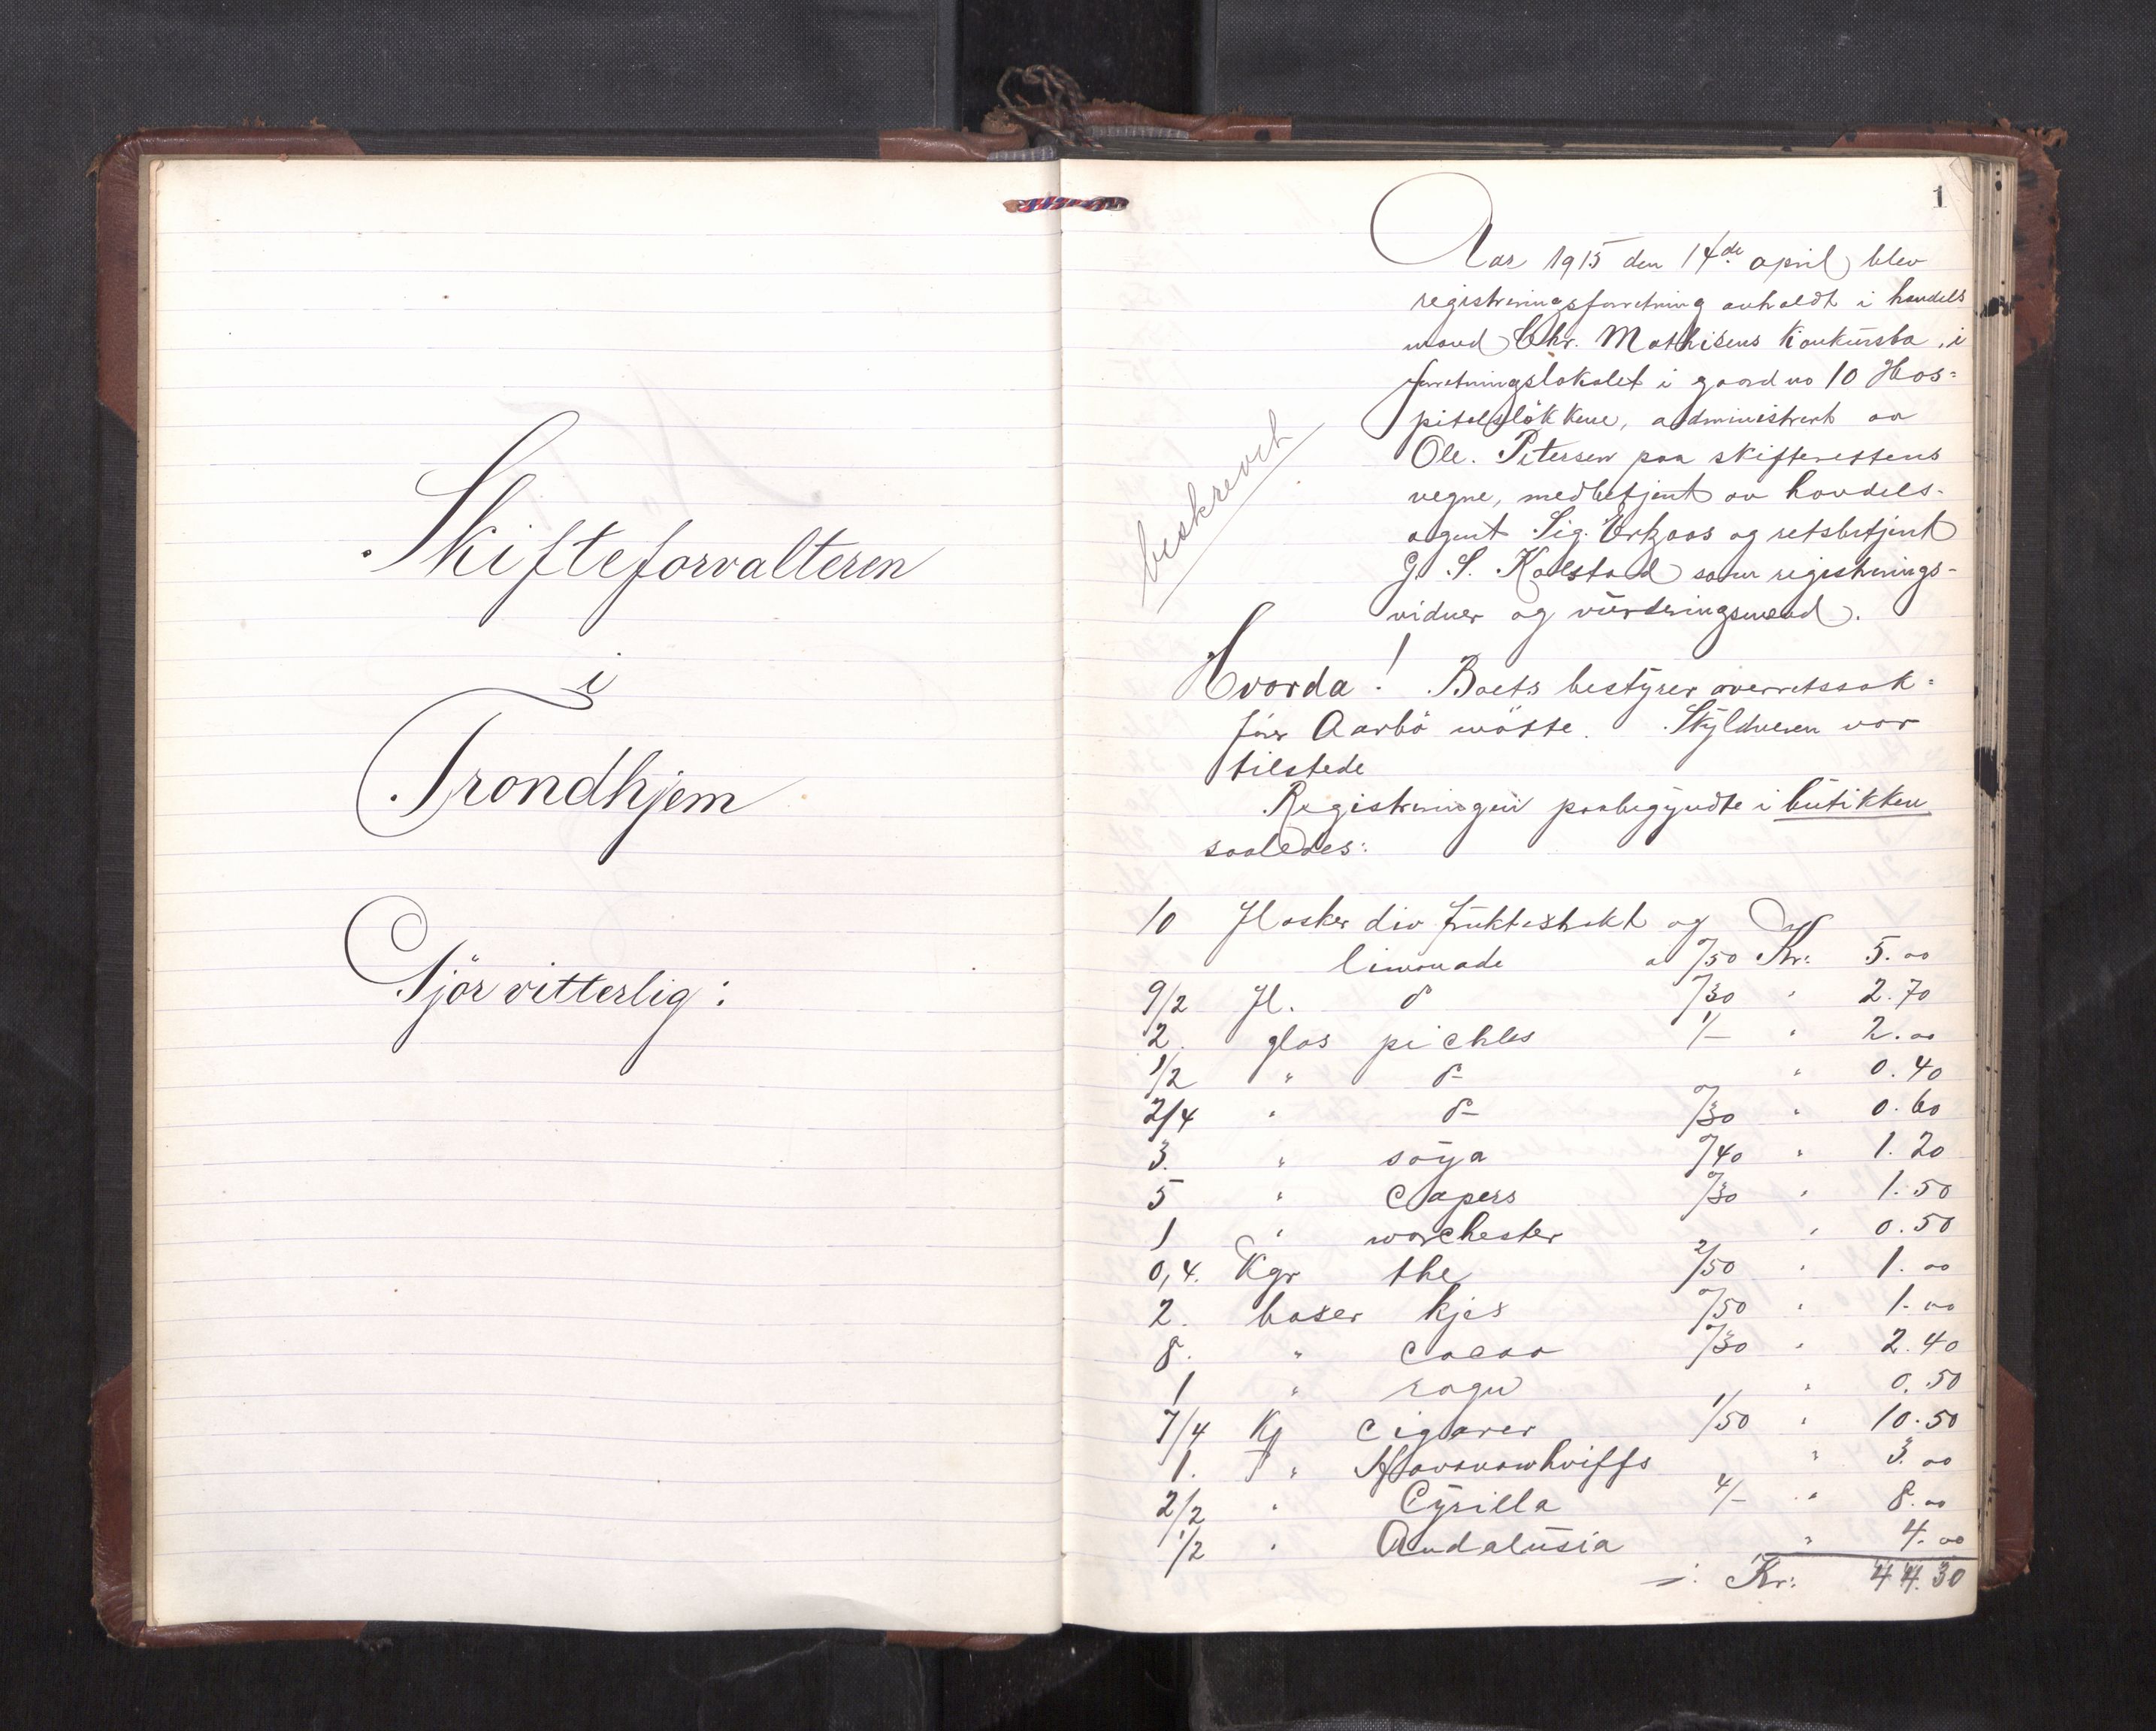 Skifteforvalteren
i
Trondhjem
Gjör vitterlig:
1
Aar 1915 den 14de april blev
registreringsforretning avholdt i handels
mand Chr. Mathisens Konkursbo, i
forretningslokalet i gaard no 10 Hos=
pitalsløkkene, administrert av
Ole. Petersen paa skifterettens
vegne, medbetjent av handels-
agent Sig. og retsbetjent
G. S. Kolstad som registrerings-
vidner og vurderingsmænd.
beskrevet
Hvorda! Boets bestyrer overretssak=
förer Aarbö mötte. Skyldneren var
tilstede
Registreringen paabegyndte i butikken
saaledes:
10 Flasker div fruktextrakt og
limonade a 0/50 Kr: 5.00
9/2 Fl. do 0/30 " 2.70
2. glas pickles 1/- " 2.00
1/2 " do " 0.40
2/4 " do 0/30 " 0.60
3. " soya 0/40 " 1.20
5 " Capers 0/30 " 1.50
1 " worchester " 0.50
0,4. Kgr the 2/50 " 1.00
2. boxer kjex 0/50 " 1.00
8. " Cacao 0/30 " 2.40
1 " sagu " 0.50
7/4 Ks Cigarer 1/50 " 10.50
1. " Havanawhiffs " 3.00
2/2 " Cyrilla 4/- " 8.00
1/2 " Andalusia " 4.00
Kr: 44.30